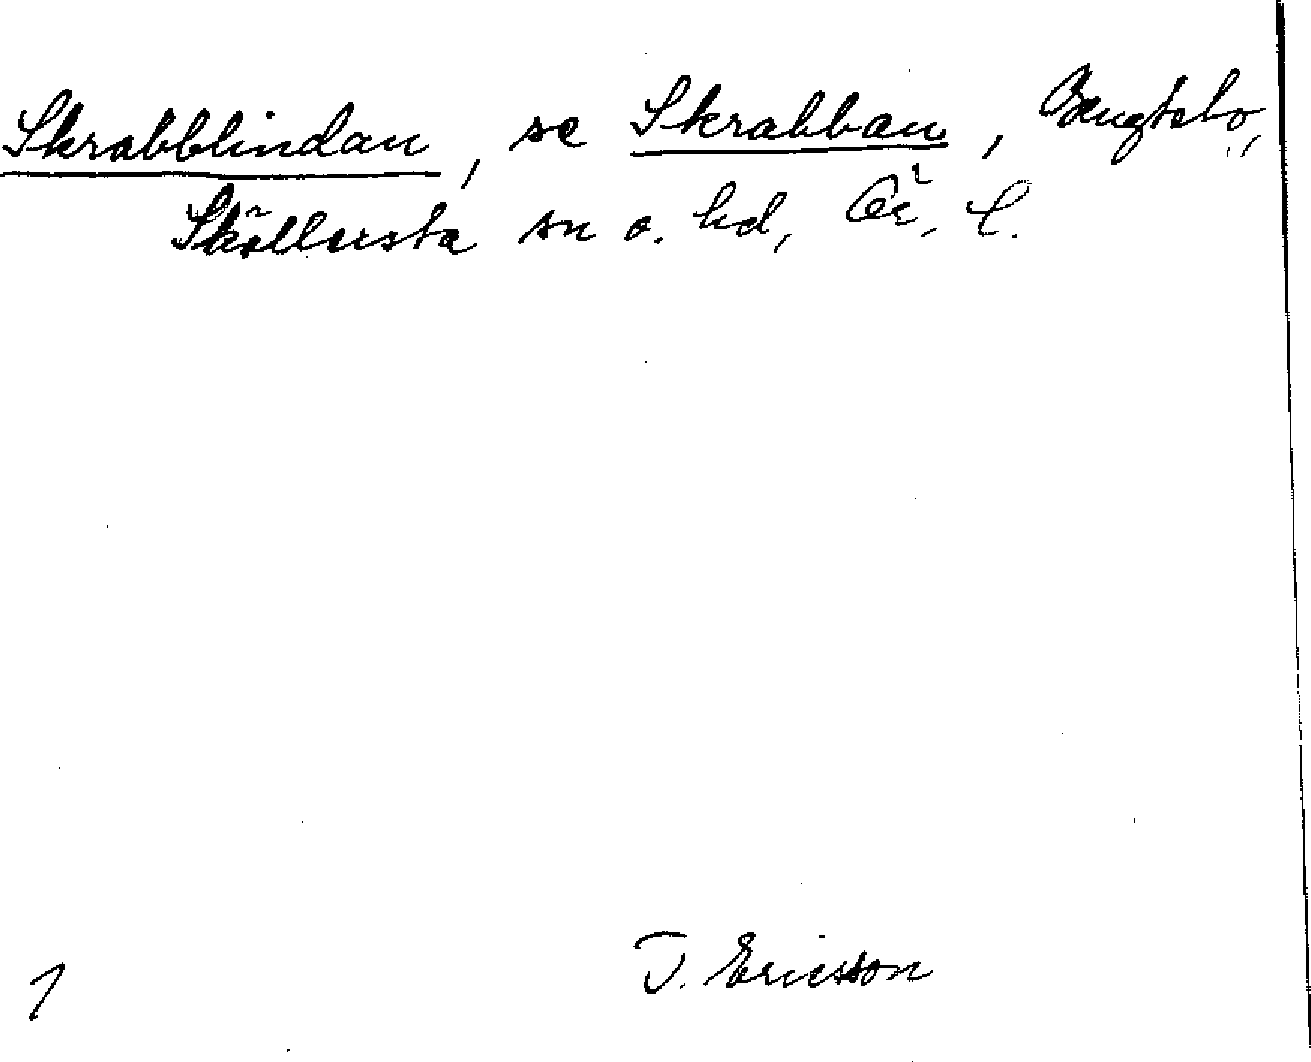 Skrabblindan, se Skrabban, Bengtsbo,
Sköllersta sn o. hd, Ör. l.
T. Ericsson
1